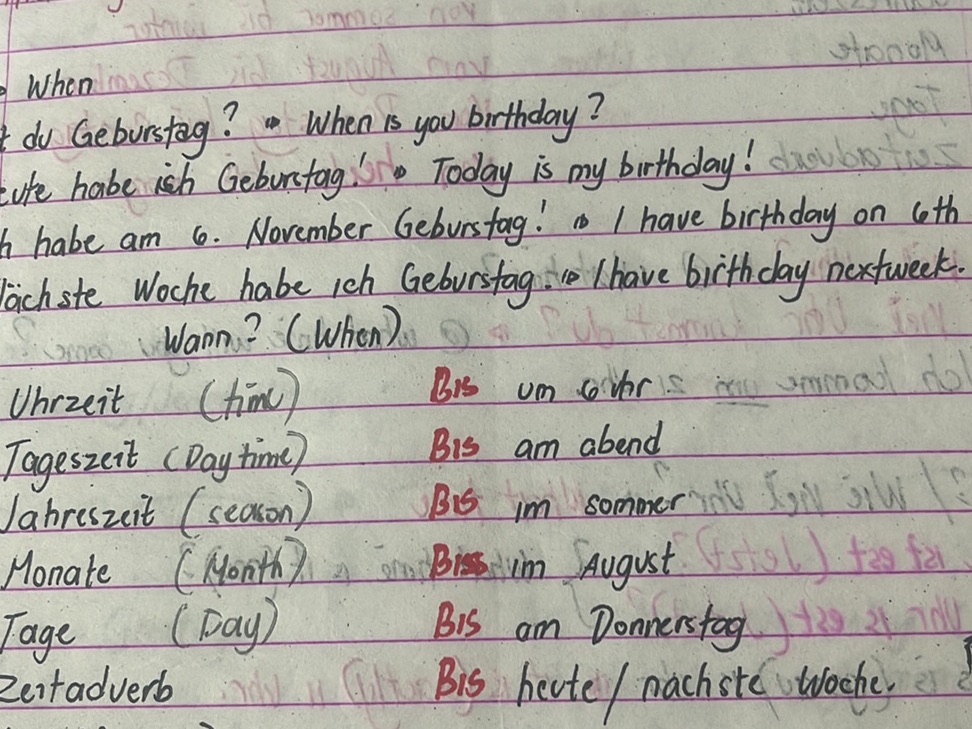 When
du Geburstag? ⇒ When is you birthday?
habe ich Geburstag! ⇒ Today is my birthday!
habe am 6. November Geburstag! ⇒ I have birthday on 6th
Woche habe ich Geburstag. ⇒ I have birthday nextweek.
Wann? (When)
Uhrzeit (time) Bis um 6 Uhr
Tageszeit (Day time) Bis am abend
Jahreszeit (season) Bis im sommer
Monate (Month) Bis im August
Tage (Day) Bis am Donnerstag
Zeitadverb Bis heute / nächste Woche.